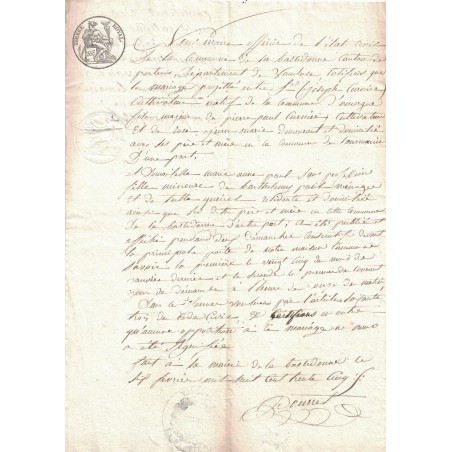 TIMBRE ROYAL
Nous Maire officier de l'état civil
de la commune de la bastidonne canton de
pertuis, Département de Vaucluse certifions que
le mariage projetté entre Sr Joseph
Cultivateur natif de la commune
fils majeur de pierre paul Cultivateur
et de marie et domicilié
avec ses père et mère en la commune de Lourmarin
D'une part,
et Demoiselle marie anne paul
fille mineure de barthelemy paul ménager
et de résidente et domiciliée
ainsi que ses dits père et mère en cette commune
de la bastidonne d'autre part; a été publié et
affiché pendant deux dimanches consécutifs devant
la principale porte de notre maison commune
savoir la première le vingt cinq du mois de
janvier dernier et la seconde le premier du courant
jour de dimanche à l'heure de onze du matin
Dans la forme voulue par l'article soixante
trois du Code Civil & Certifions en outre
qu'aucune opposition à ce mariage ne nous
a été signifiée
fait à la mairie de la bastidonne ce
février mil huit cent trente cinq